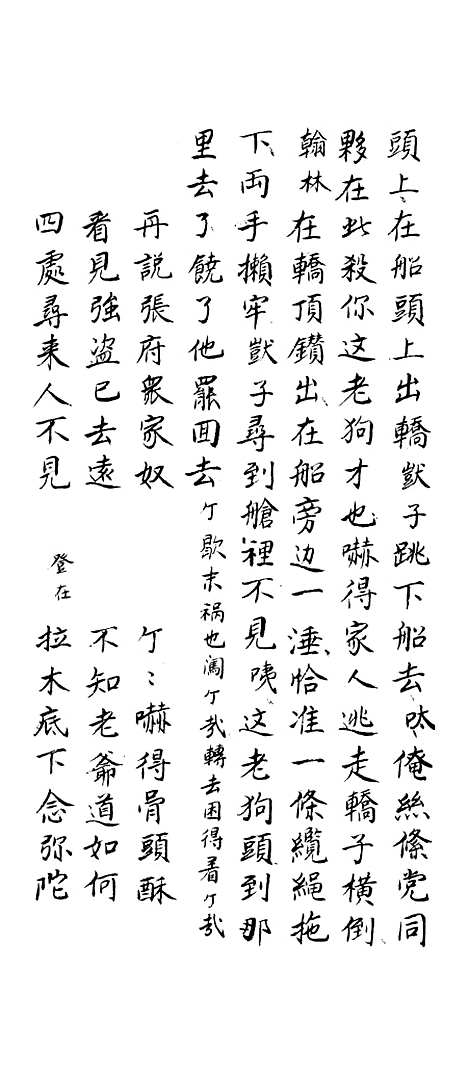 頭上在船頭上出轎獃子跳下船去呔俺絲絛党同
夥在此殺你这老狗才也嚇得家人逃走轎子橫倒
翰林在轎頂鑽出在船旁边一漄恰准一條纜繩拖
下両手攋牢獃子尋到艙裡不見咦这老狗頭到那
里去了饒了他罷囬去𠆢歇末祸也闖𠆢哉轉去困得着𠆢哉
再説張府衆家奴　𠆢〻嚇得骨頭酥
看見強盗已去遠　不知老爺道如何
四處尋来人不見　登在拉木底下念弥陀